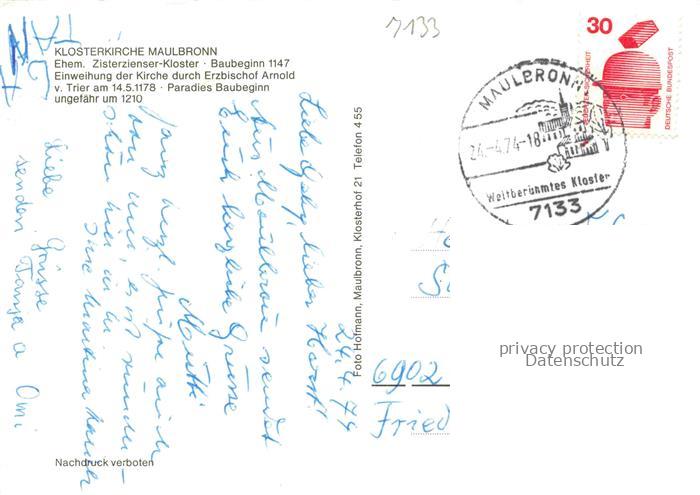 7133
KLOSTERKIRCHE MAULBRONN
Ehem. Zisterzienser-Kloster · Baubeginn 1147
Einweihung der Kirche durch Erzbischof Arnold
v. Trier am 14.5.1178 · Paradies Baubeginn
ungefähr um 1210
24.4.74
Liebe Gaby, lieber Horst!
Aus Maulbronn sendet
Euch herzliche Grüsse
Mutti
ganz herzl. Grüße auch
von mir, es ist wunder-
schön hier in
Liebe Grüsse
senden Tanja u Omi
Foto Hofmann, Maulbronn, Klosterhof 21 Telefon 4 55
Nachdruck verboten
30
DEUTSCHE BUNDESPOST
MAULBRONN
24.-4.74-18
Weltberühmtes Kloster
7133
6902
Fried
privacy protection
Datenschutz